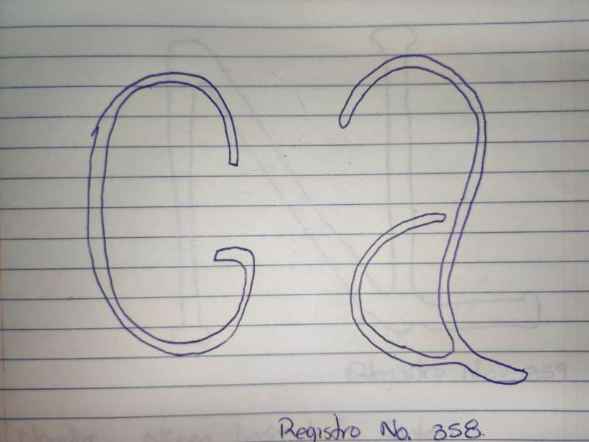 Ga
Registro No. 358.